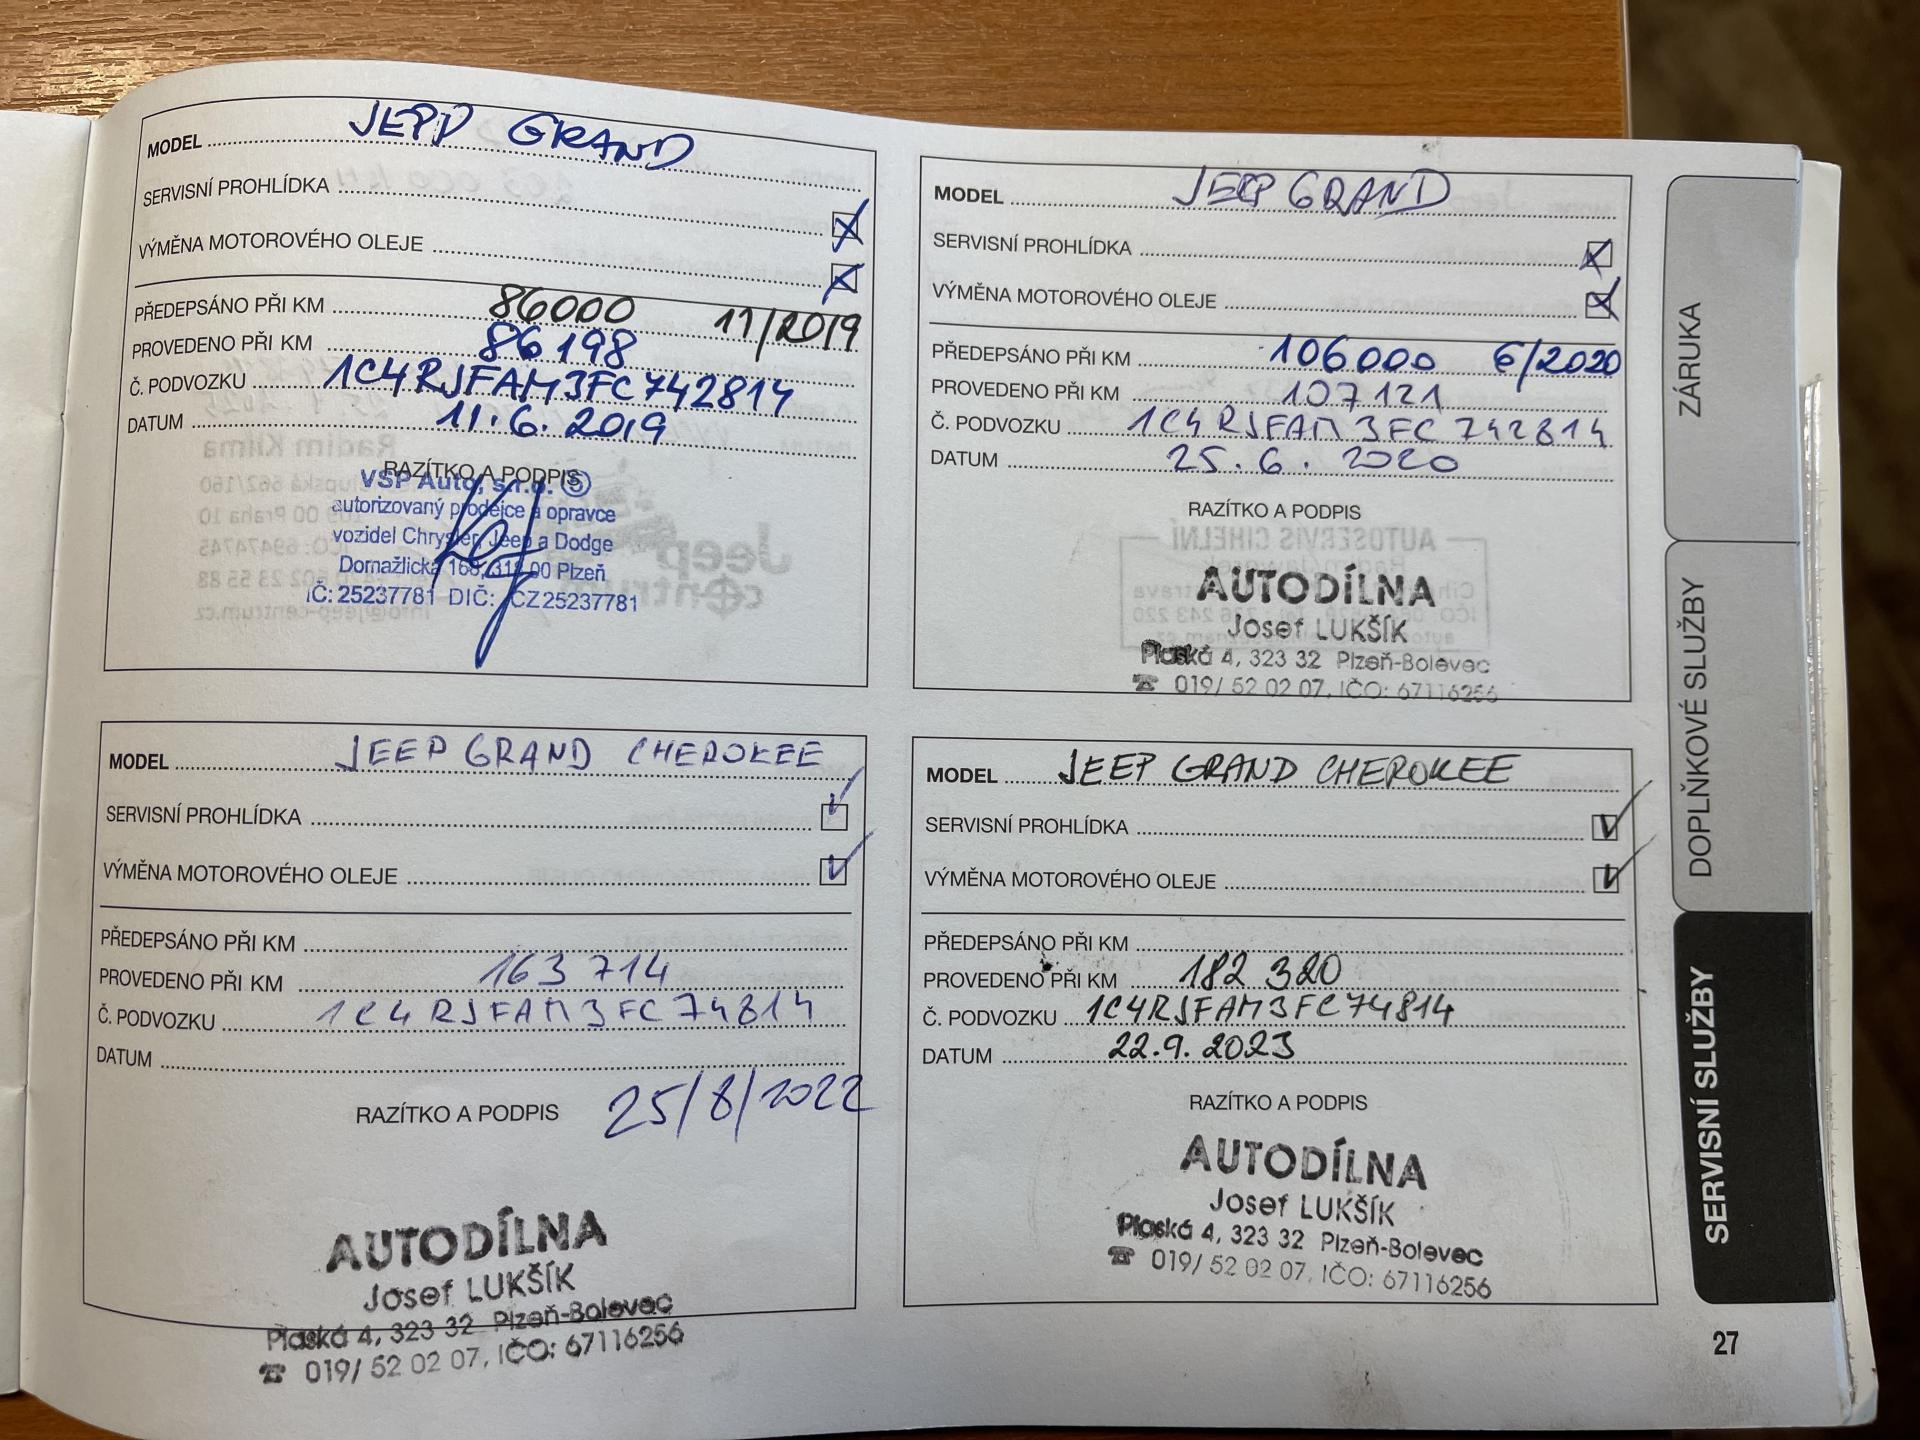 MODEL JEPD GRAND
SERVISNÍ PROHLÍDKA
VÝMĚNA MOTOROVÉHO OLEJE
PŘEDEPSÁNO PŘI KM 86000 11/2019
PROVEDENO PŘI KM 86198
Č. PODVOZKU 1C4RJFAM3FC742814
DATUM 11.6.2019
RAZÍTKO A PODPIS
VSP Auto, s.r.o. ⑤
autorizovaný prodejce a opravce
vozidel Chrysler, Jeep a Dodge
Domažlická 168, 318 00 Plzeň
IČ: 25237781 DIČ: CZ25237781
MODEL JEEP GRAND
SERVISNÍ PROHLÍDKA
VÝMĚNA MOTOROVÉHO OLEJE
PŘEDEPSÁNO PŘI KM 106000 6/2020
PROVEDENO PŘI KM 107121
Č. PODVOZKU 1C4RJFAM3FC742814
DATUM 25.6.2020
RAZÍTKO A PODPIS
AUTODÍLNA
Josef LUKŠÍK
Plaská 4, 323 32 Plzeň-Bolevec
☎ 019/ 52 02 07, IČO: 67116256
MODEL JEEP GRAND CHEROKEE
SERVISNÍ PROHLÍDKA
VÝMĚNA MOTOROVÉHO OLEJE
PŘEDEPSÁNO PŘI KM
PROVEDENO PŘI KM 163 714
Č. PODVOZKU 1C4RJFAM3FC74814
DATUM
RAZÍTKO A PODPIS 25/8/2022
AUTODÍLNA
Josef LUKŠÍK
Plaská 4, 323 32 Plzeň-Bolevec
☎ 019/ 52 02 07, IČO: 67116256
MODEL JEEP GRAND CHEROKEE
SERVISNÍ PROHLÍDKA
VÝMĚNA MOTOROVÉHO OLEJE
PŘEDEPSÁNO PŘI KM
PROVEDENO PŘI KM 182 320
Č. PODVOZKU 1C4RJFAM3FC74814
DATUM 22.9.2023
RAZÍTKO A PODPIS
AUTODÍLNA
Josef LUKŠÍK
Plaská 4, 323 32 Plzeň-Bolevec
☎ 019/ 52 02 07, IČO: 67116256
ZÁRUKA
DOPLŇKOVÉ SLUŽBY
SERVISNÍ SLUŽBY
27